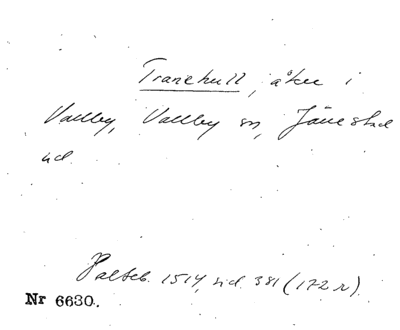 Tranehull, åker i
Vallby, Vallby sn, Järrestad
hd.
Palteb. 1514, sid. 381 (172 r).
Nr 6630.